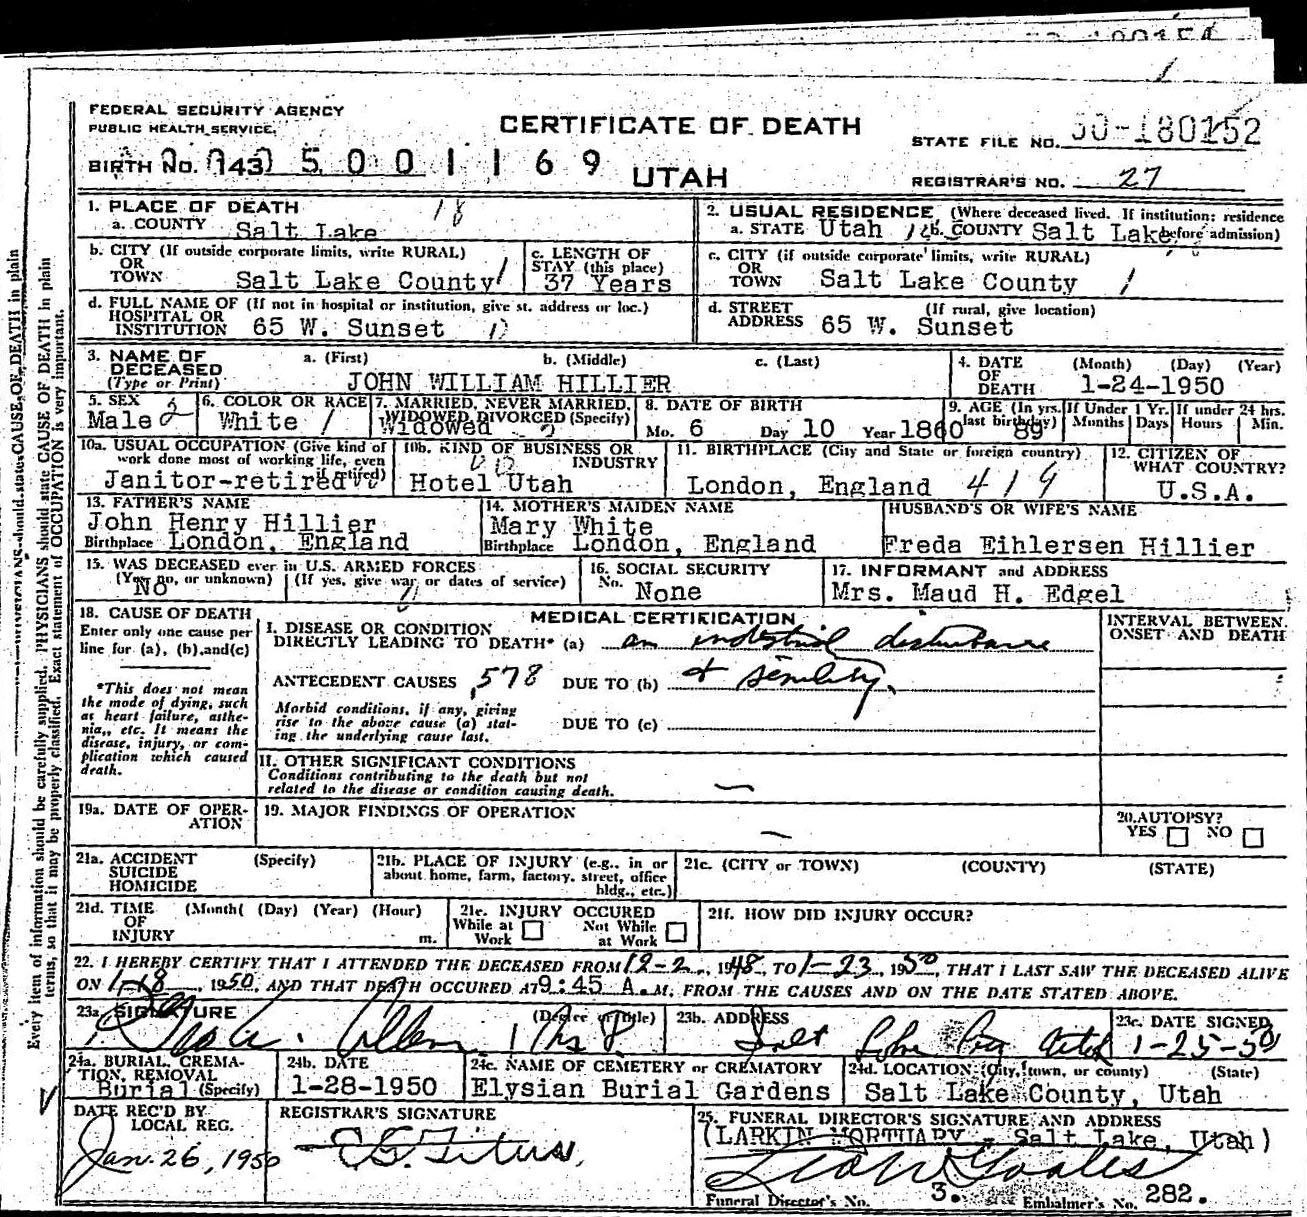 FEDERAL SECURITY AGENCY
PUBLIC HEALTH SERVICE.
CERTIFICATE OF DEATH
STATE FILE NO. 50-180152
BIRTH NO. 143 5 0 0 1 1 6 9
UTAH
REGISTRAR'S NO. 27
1. PLACE OF DEATH 18
a. COUNTY Salt Lake
2. USUAL RESIDENCE (Where deceased lived. If institution: residence
a. STATE Utah b. COUNTY Salt Lake before admission)
b. CITY (If outside corporate limits, write RURAL)
OR
TOWN Salt Lake County
c. LENGTH OF
STAY (this place)
37 Years
c. CITY (if outside corporate limits, write RURAL)
OR
TOWN Salt Lake County
d. FULL NAME OF (If not in hospital or institution, give st. address or loc.)
HOSPITAL OR
INSTITUTION 65 W. Sunset
d. STREET (If rural, give location)
ADDRESS 65 W. Sunset
3. NAME OF a. (First) b. (Middle) c. (Last)
DECEASED
(Type or Print) JOHN WILLIAM HILLIER
4. DATE (Month) (Day) (Year)
OF
DEATH 1-24-1950
5. SEX
Male 2
6. COLOR OR RACE
White 1
7. MARRIED, NEVER MARRIED,
WIDOWED DIVORCED (Specify)
Widowed
8. DATE OF BIRTH
Mo. 6 Day 10 Year 1860
9. AGE (In yrs. last birthday) 89
If Under 1 Yr.
Months Days
If under 24 hrs.
Hours Min.
10a. USUAL OCCUPATION (Give kind of
work done most of working life, even
if retired)
Janitor-retired
10b. KIND OF BUSINESS OR
INDUSTRY
Hotel Utah
11. BIRTHPLACE (City and State or foreign country)
London, England 419
12. CITIZEN OF
WHAT COUNTRY?
U.S.A.
13. FATHER'S NAME
John Henry Hillier
Birthplace London, England
14. MOTHER'S MAIDEN NAME
Mary White
Birthplace London, England
HUSBAND'S OR WIFE'S NAME
Freda Eihlersen Hillier
15. WAS DECEASED ever in U.S. ARMED FORCES
(Yes, no, or unknown) (If yes, give war or dates of service)
No
16. SOCIAL SECURITY
No. None
17. INFORMANT and ADDRESS
Mrs. Maud H. Edgel
18. CAUSE OF DEATH
Enter only one cause per
line for (a), (b), and (c)
*This does not mean
the mode of dying, such
as heart failure, asthe-
nia,, etc. It means the
disease, injury, or com-
plication which caused
death.
MEDICAL CERTIFICATION
I. DISEASE OR CONDITION
DIRECTLY LEADING TO DEATH* (a) an disturbance
ANTECEDENT CAUSES 578 DUE TO (b) + senility.
Morbid conditions, if any, giving
rise to the above cause (a) stat-
ing the underlying cause last.
DUE TO (c)
INTERVAL BETWEEN
ONSET AND DEATH
II. OTHER SIGNIFICANT CONDITIONS
Conditions contributing to the death but not
related to the disease or condition causing death. —
19a. DATE OF OPER-
ATION
19. MAJOR FINDINGS OF OPERATION
—
20. AUTOPSY?
YES NO
21a. ACCIDENT (Specify)
SUICIDE
HOMICIDE
21b. PLACE OF INJURY (e.g., in or
about home, farm, factory, street, office
bldg., etc.)
21c. (CITY or TOWN) (COUNTY) (STATE)
21d. TIME (Month( (Day) (Year) (Hour)
OF
INJURY m.
21e. INJURY OCCURED
While at Not While
Work at Work
21f. HOW DID INJURY OCCUR?
22. I HEREBY CERTIFY THAT I ATTENDED THE DECEASED FROM 12-2, 1948, TO 1-23, 1950, THAT I LAST SAW THE DECEASED ALIVE
ON 1-18, 1950, AND THAT DEATH OCCURED AT 9:45 A.M. FROM THE CAUSES AND ON THE DATE STATED ABOVE.
23a. SIGNATURE (Degree or title)
23b. ADDRESS
Salt Lake City Utah
23c. DATE SIGNED
1-25-50
24a. BURIAL, CREMA-
TION, REMOVAL
Burial (Specify)
24b. DATE
1-28-1950
24c. NAME OF CEMETERY or CREMATORY
Elysian Burial Gardens
24d. LOCATION (City, town, or county) (State)
Salt Lake County, Utah
DATE REC'D BY
LOCAL REG.
Jan. 26, 1950
REGISTRAR'S SIGNATURE
25. FUNERAL DIRECTOR'S SIGNATURE AND ADDRESS
(LARKIN MORTUARY - Salt Lake, Utah)
Funeral Director's No. 3. Embalmer's No. 282.
Every item of information should be carefully supplied. PHYSICIANS should state CAUSE OF DEATH in plain
terms, so that it may be properly classified. Exact statement of OCCUPATION is very important.